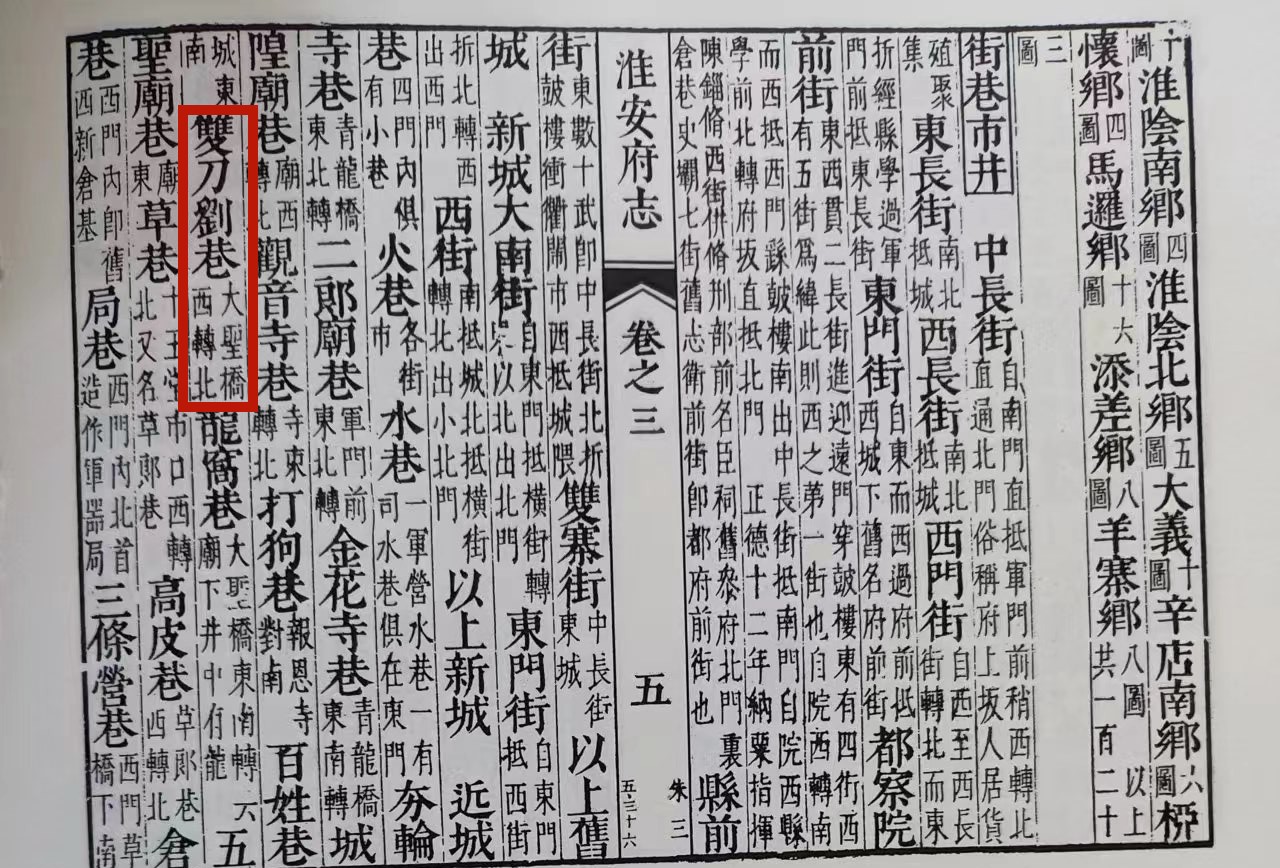 十圖淮陰南鄉四圖淮陰北鄉五圖大義十圖辛店南鄉六圖椏
懷鄉四圖馬邏鄉十六圖添差鄉八圖羊寨鄉八圖以上共一百二十
三圖
街巷市井 中長街自南門直抵軍門前稍西轉北直通北門俗稱府上坂人居貨
殖聚集 東長街南北抵城 西長街南北抵城 西門街自西至西長街轉北而東
折經縣學過軍門前抵東長街 東門街自東而西過府前抵西城下舊名府前街 都察院
前街東西貫二長街進迎遠門穿鼓樓東有四街西有五街爲緯此則西之第一街也自院西轉南
而西抵西門繇鼓樓南出中長街抵南門自院西縣學前北轉府坂直抵北門 正德十二年納粟指揮
陳錙脩西街併脩刑部前名臣祠舊叅府北門裏倉巷史壩七街舊志衛前街卽都府前街也 縣前
淮安府志 卷之三 五 朱三 五·三十六
街東數十武卽中長街北折鼓樓衝衢闤市西抵城隈 雙寨街中長街東城 以上舊
城 新城大南街自東門抵橫街轉以北出北門 東門街自東門抵西街
折北轉西出西門 西街南抵城北抵橫街轉北北出小北門 以上新城 近城
巷四門內俱有小巷 火巷各街市 水巷一軍營水巷一有司水巷俱在東門 夯輪
寺巷青龍橋東北轉 二郎廟巷軍門前東北轉 金花寺巷青龍橋東南轉 城
隍廟巷廟西轉北 觀音寺巷寺東轉北 打狗巷報恩寺對南 百姓巷
城東南 雙刀劉巷大聖橋西轉北 龍窩巷大聖橋東南轉六廟下井中有龍 五
聖廟巷廟東 草巷十五堂市口西轉北又名草郎巷 高皮巷草郎巷西轉北 倉
巷西門內卽舊西新倉基 局巷西門內北首造作軍器局 三條營巷西門草橋下南